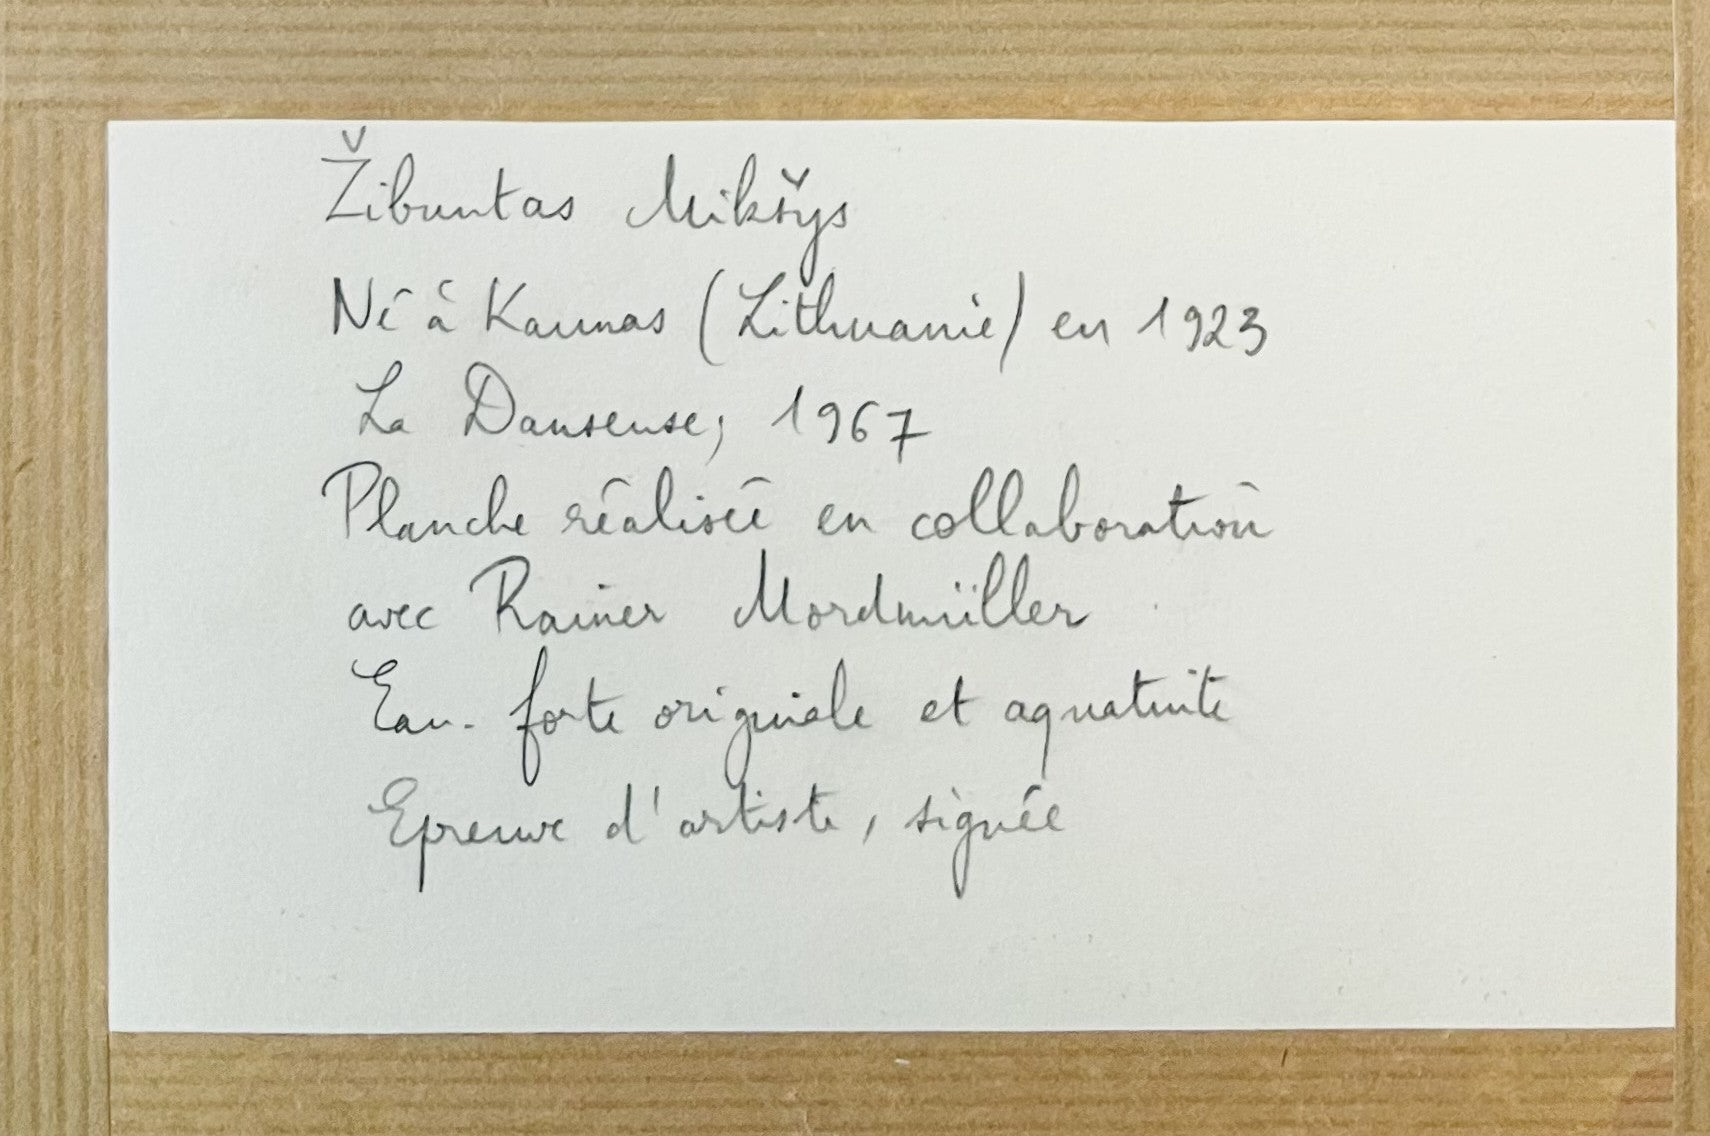 Žibuntas Mikšys
Né à Kaunas (Lithuanie) en 1923
La Danseuse, 1967
Planche réalisée en collaboration
avec Rainer Mordmüller
Eau-forte originale et aquatinte
Epreuve d'artiste, signée